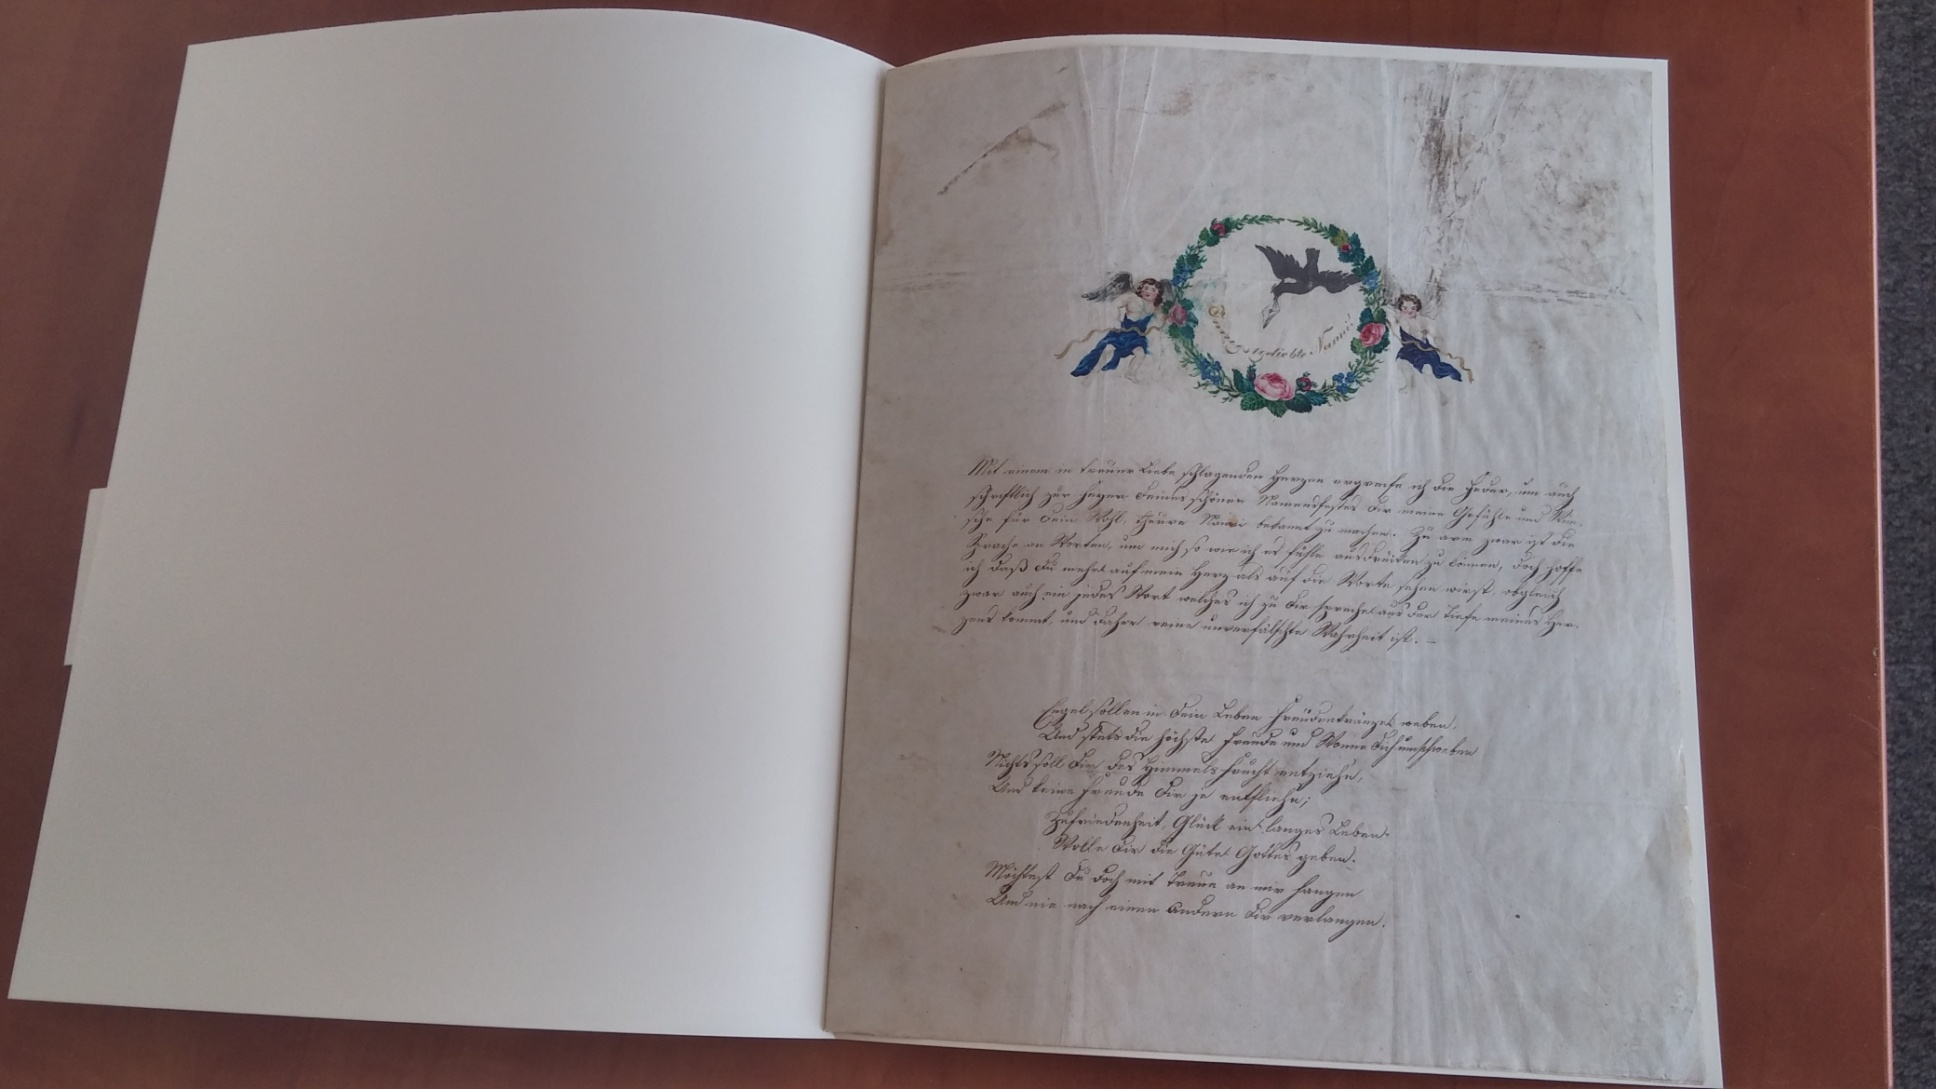 Innigstgeliebte Nanni!
Mit einem in treuer Liebe schlagenden Herzen ergreife ich die Feder, um auch
schriftlich zur Feyer Deines schönen Namensfestes Dir meine Gefühle und Wün-
sche für Dein Wohl, theure Nanni bekannt zu machen. Zu arm zwar ist die
Sprache an Worten, um mich so wie ich es fühle ausdrücken zu können, doch hoffe
ich daß Du mehr auf mein Herz als auf die Worte sehen wirst, obgleich
zwar auch ein jedes Wort welches ich zu Dir spreche aus der Tiefe meines Her-
zens kommt, und daher reine unverfälschte Wahrheit ist. –
Engel sollen in Dein Leben Freudenkränze weben,
Und stets die höchste Freude und Wonne Dich umschweben
Nichts soll Dir des Himmels Frucht entziehn,
Und keine Freude Dir je entfliehn;
Zufriedenheit, Glück ein langes Leben
Wolle Dir die Güte Gottes geben.
Möchtest Du doch mit Treue an mir hangen
Und nie nach einen Andern Dir verlangen.